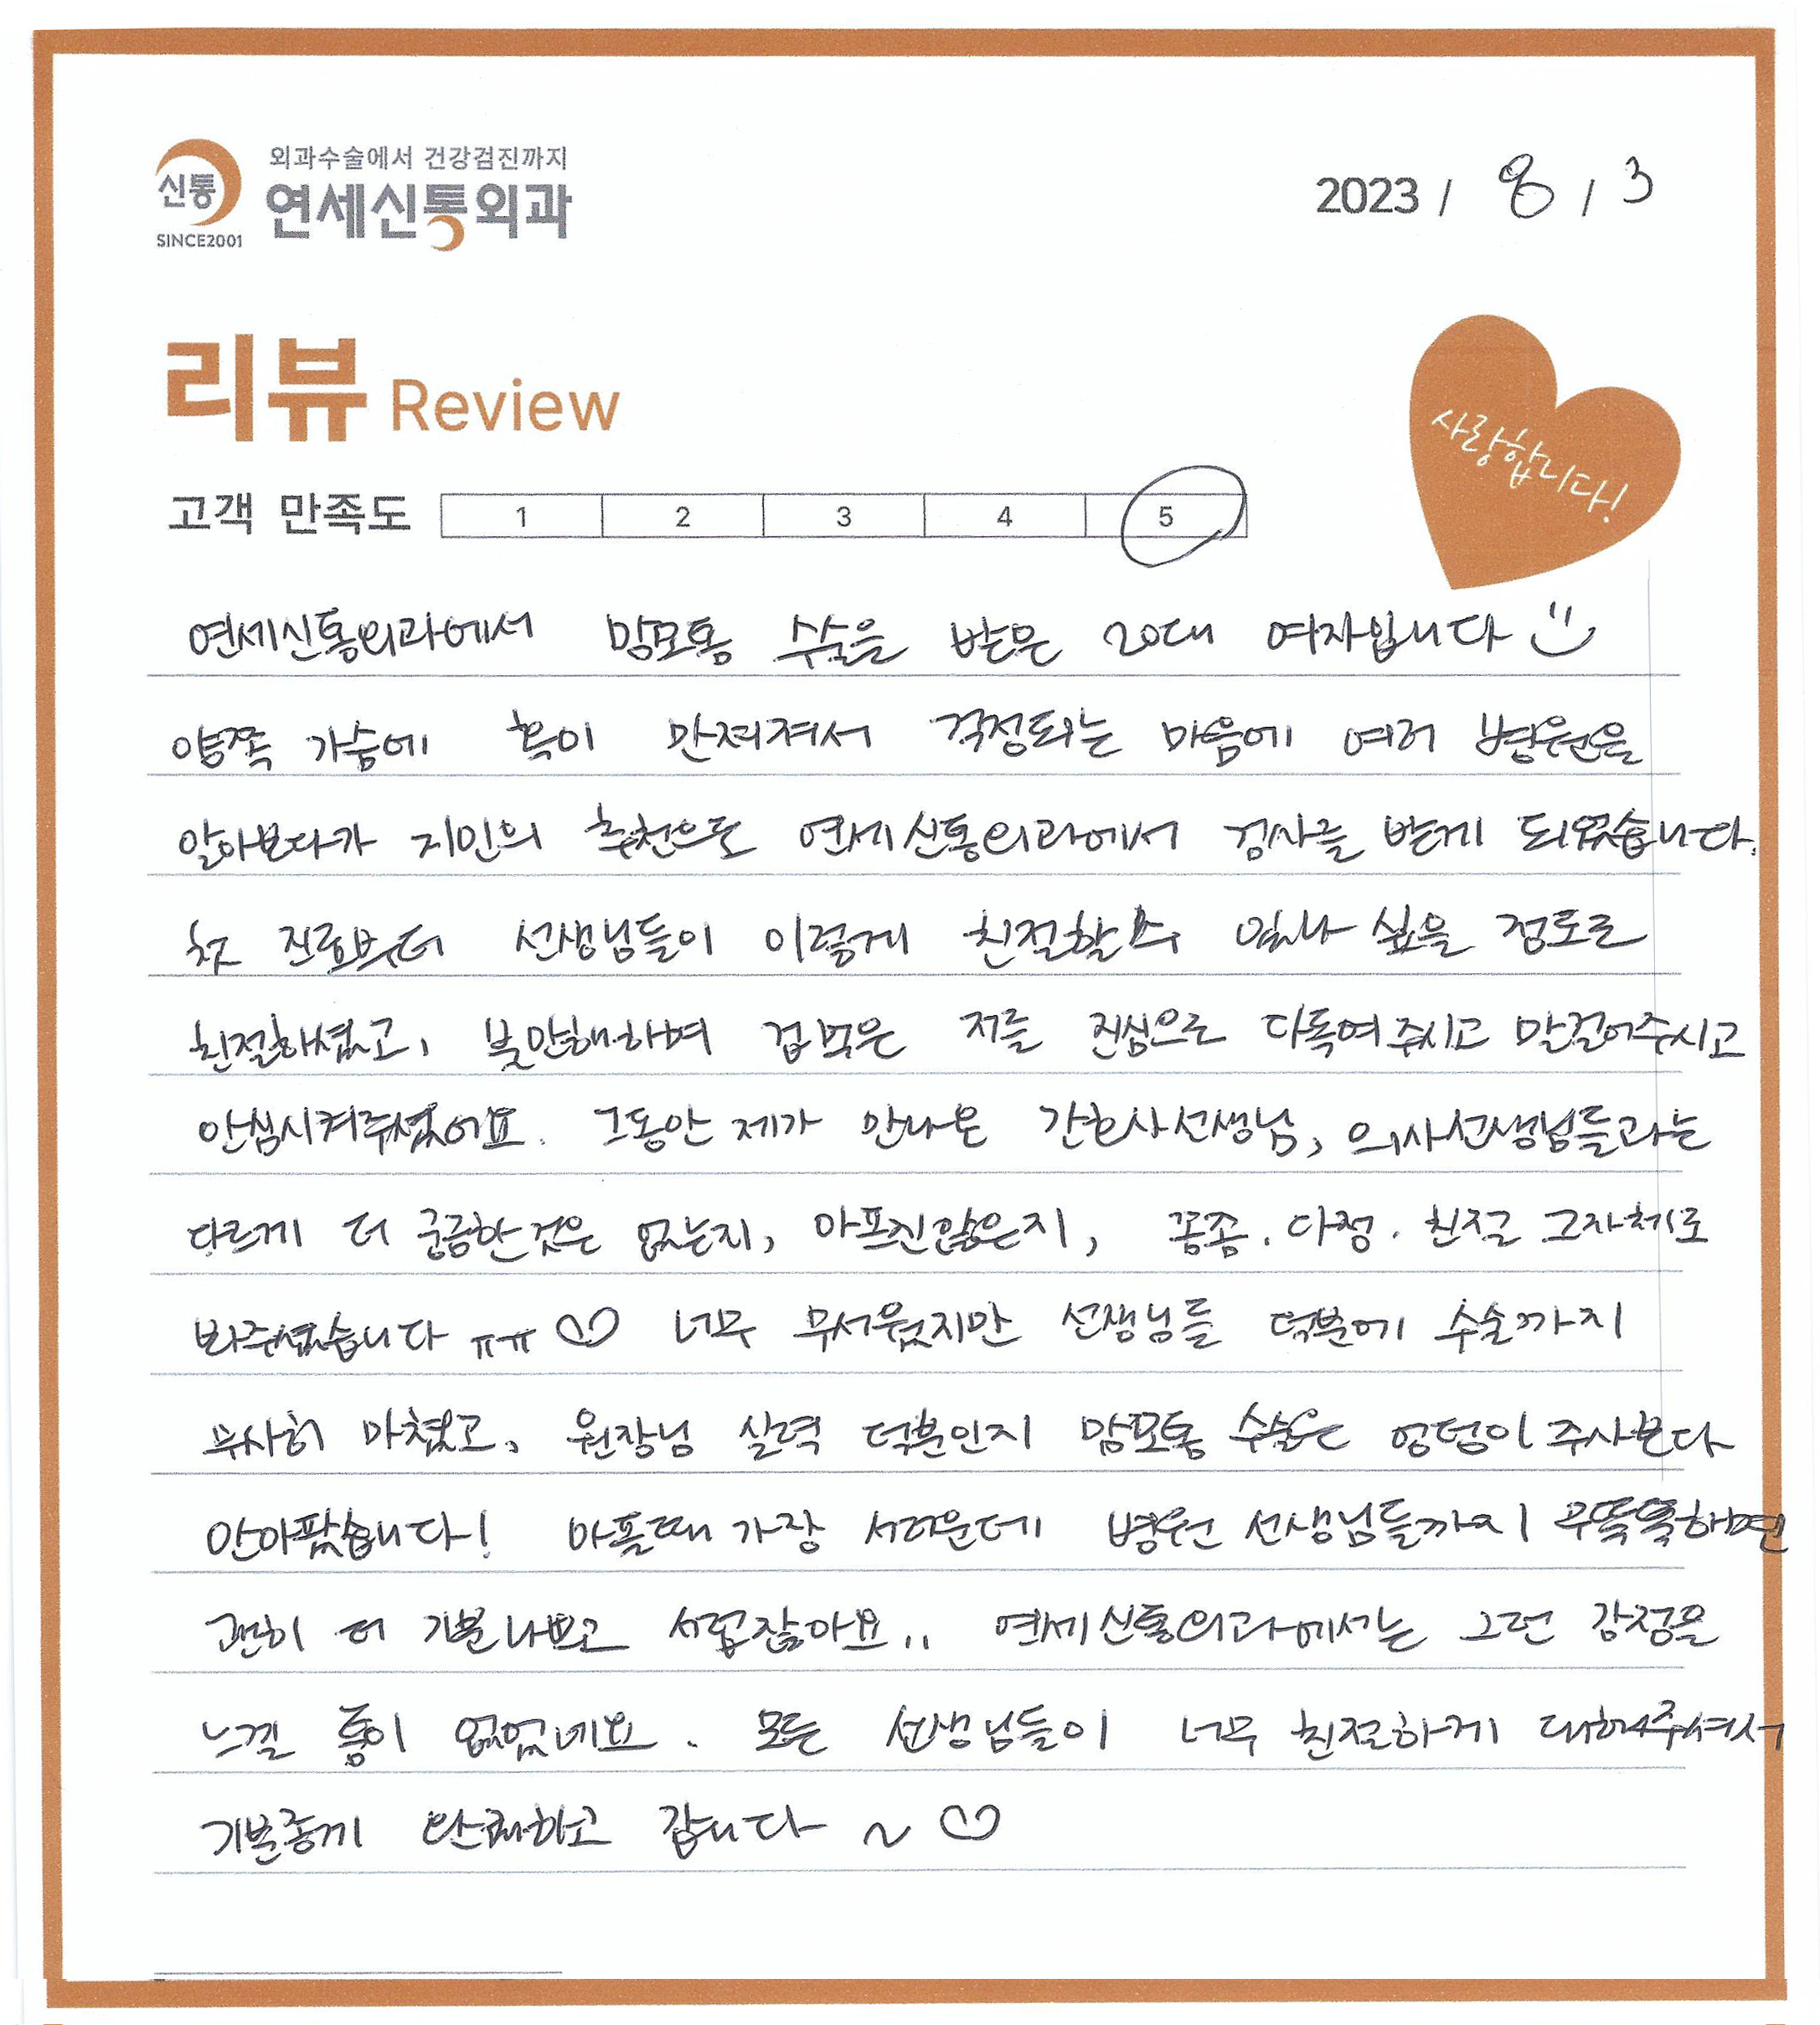 신통
SINCE2001
외과수술에서 건강검진까지
연세신통외과
2023 / 8 / 3
리뷰 Review
사랑합니다!
고객 만족도 1 2 3 4 5
연세신통외과에서 맘모톰 수술을 받은 20대 여자입니다
양쪽 가슴에 혹이 만져져서 걱정되는 마음에 여러 병원을
알아보다가 지인의 추천으로 연세신통외과에서 검사를 받게 되었습니다.
첫 진료부터 선생님들이 이렇게 친절할 수 있나 싶을 정도로
친절하셨고, 불안해하며 겁먹은 저를 진심으로 다독여주시고 말걸어주시고
안심시켜주셨어요. 그동안 제가 만나온 간호사선생님, 의사선생님들과는
다르게 더 궁금한것은 없는지, 아프진않은지, 꼼꼼. 다정. 친절 그자체로
봐주셨습니다 ㅠㅠ ♡ 너무 무서웠지만 선생님들 덕분에 수술까지
무사히 마쳤고, 원장님 실력 덕분인지 맘모톰 수술은 엉덩이 주사보다
안아팠습니다! 아플때 가장 서러운데 병원 선생님들까지 무뚝뚝하면
괜히 더 기분나쁘고 서럽잖아요.. 연세신통외과에서는 그런 감정을
느낄 틈이 없었네요. 모든 선생님들이 너무 친절하게 대해주셔서
기분좋게 완쾌하고 갑니다 ~ ♡